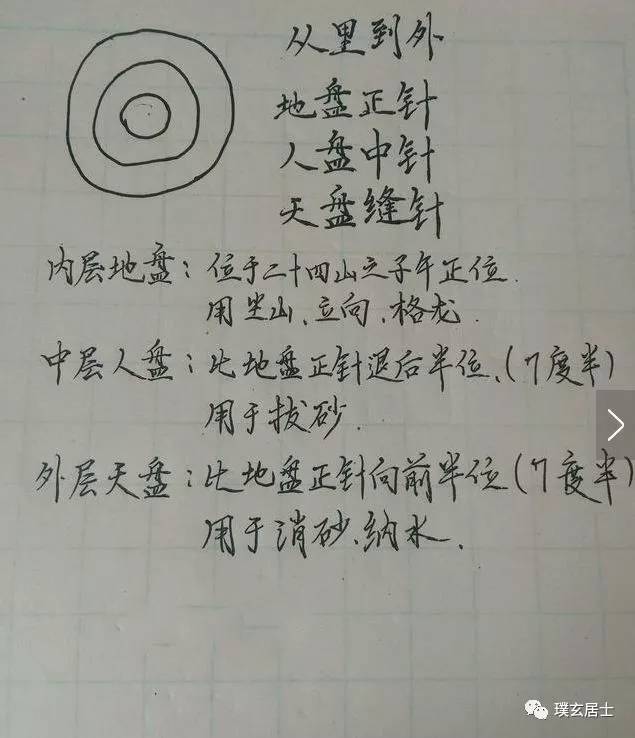 从里到外
地盘正针
人盘中针
天盘缝针
内层地盘：位于二十四山之子午正位.
用坐山、立向、格龙.
中层人盘：比地盘正针退后半位、(7度半)
用于拔砂.
外层天盘：比地盘正针向前半位(7度半)
用于消砂、纳水.
璞玄居士